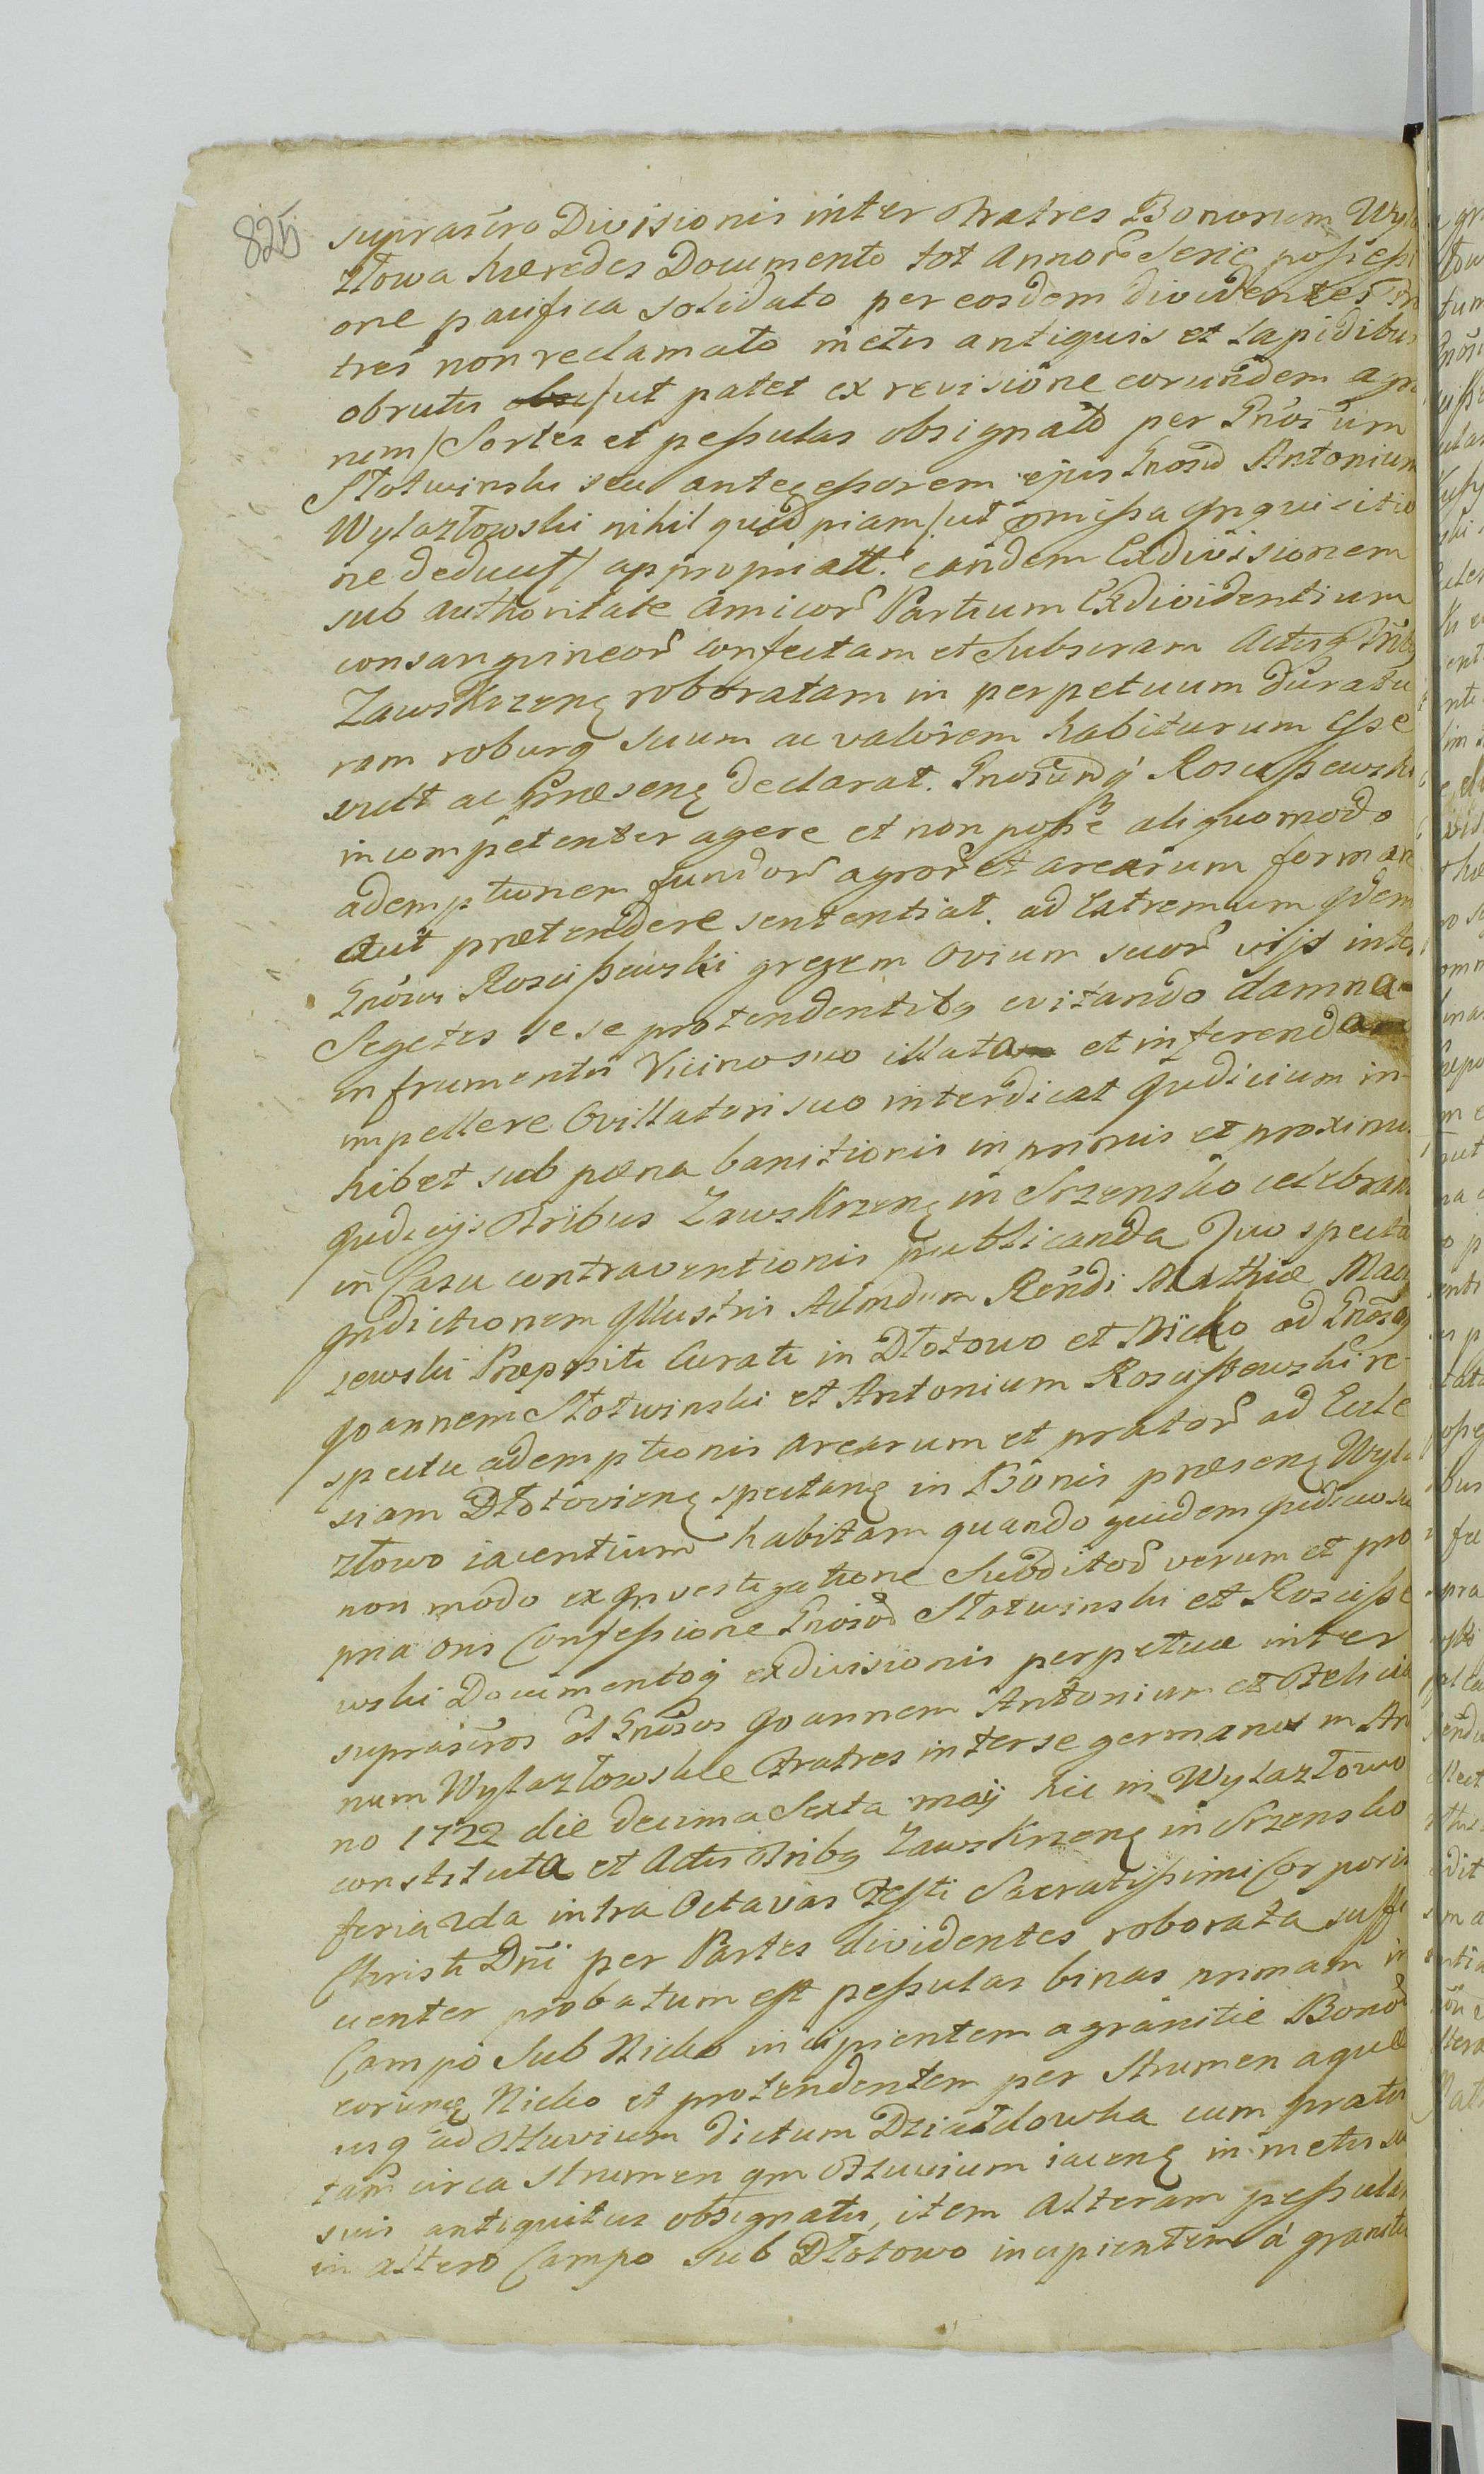 825
suprascro Divisionis inter Fratres Bonorum Wyla
złowa hæredes Documento tot Annor Serie possessi
one pacifica solidato per eosdem dividentes Fra
tres non reclamato metis antiquis et lapidibus
obrutis /ut patet ex revisione eorundem agro
rum/ Sortes et pessulas obsignato per Gnosum
Słotwinski seu antecessorem ejus Gnosum Antonium
Wylazłowski nihil quidpiam /ut præmissa Inquisitio
ne deduxit/ appropriatt. eandem Exdivisionem
sub authoritate Amicor Partium Exdividentium
consangvineor confectam et Subscram Actisq Tribus
Zawskrzenq roboratam in perpetuum duratu
ram roburq suum ac valorem habiturum esse
vult ac præsenq declarat. Gnosumq Rosciszewski
incompetenter agere et non posse aliquo modo
ademptionem fundor agror et arearum formare
aut prætendere sententiat. ad Extremum qdem
Gnosus Rosciszewski gregem Ovium suor vijs inter
Segetes sese protendentibq evitando damna
in frumentis Vicino suo illata et inferenda
impellere Ovillatori suo interdicat Judicium in-
hibet sub pœna banitionis in primis et proximis
Judicijs Tribus Zawskrzenq in Srzensko celebrand
in Casu contraventionis publicanda Quo specta
Indictionem Illustris Admdum Rendi Mathiæ Mac
zewski Præpositi Curati in Dłotowo et Nicko ad Gnosos
Joannem Słotwinski et Antonium Rosciszewski re-
spectu ademptionis arearum et prator ad Eccle
siam Dłotovienq spectanq in Bonis præsenq Wyla
złowo iacentium habitam quando quidem Judicio su
non modo ex Investigatione Subditor verum et pro
pria oris Confessione Gnosor Słotwinski et Roscisze
wski Documentoq exdivisionis perpetuæ inter
suprascros ol Gnosos Joannem Antonium et Felicia
num Wylazłowskie Fratres inter se germanos in An
no 1722 die decima Sexta maij hic in Wylazłowo
constituta et Actis Tribq Zawskrzenq in Srzensko
feria 2da intra Octavas Festi Sacratissimi Corporis
Christi Dni per Partes dividentes roborata suffi
cienter probatum est pessulas binas primam in
Campo sub Nicko incipientem a granitie Bonor
eorunq Nicko et protendentem per Strumen aquæ
usq ad Fluvium dictum Działdowka cum pratis
tam circa strumen qm Fluvium iacenq in metis su
suis antiquitus obsignatis, item Alteram pessulam
in altero Campo sub Dłotowo incipientem a granitie